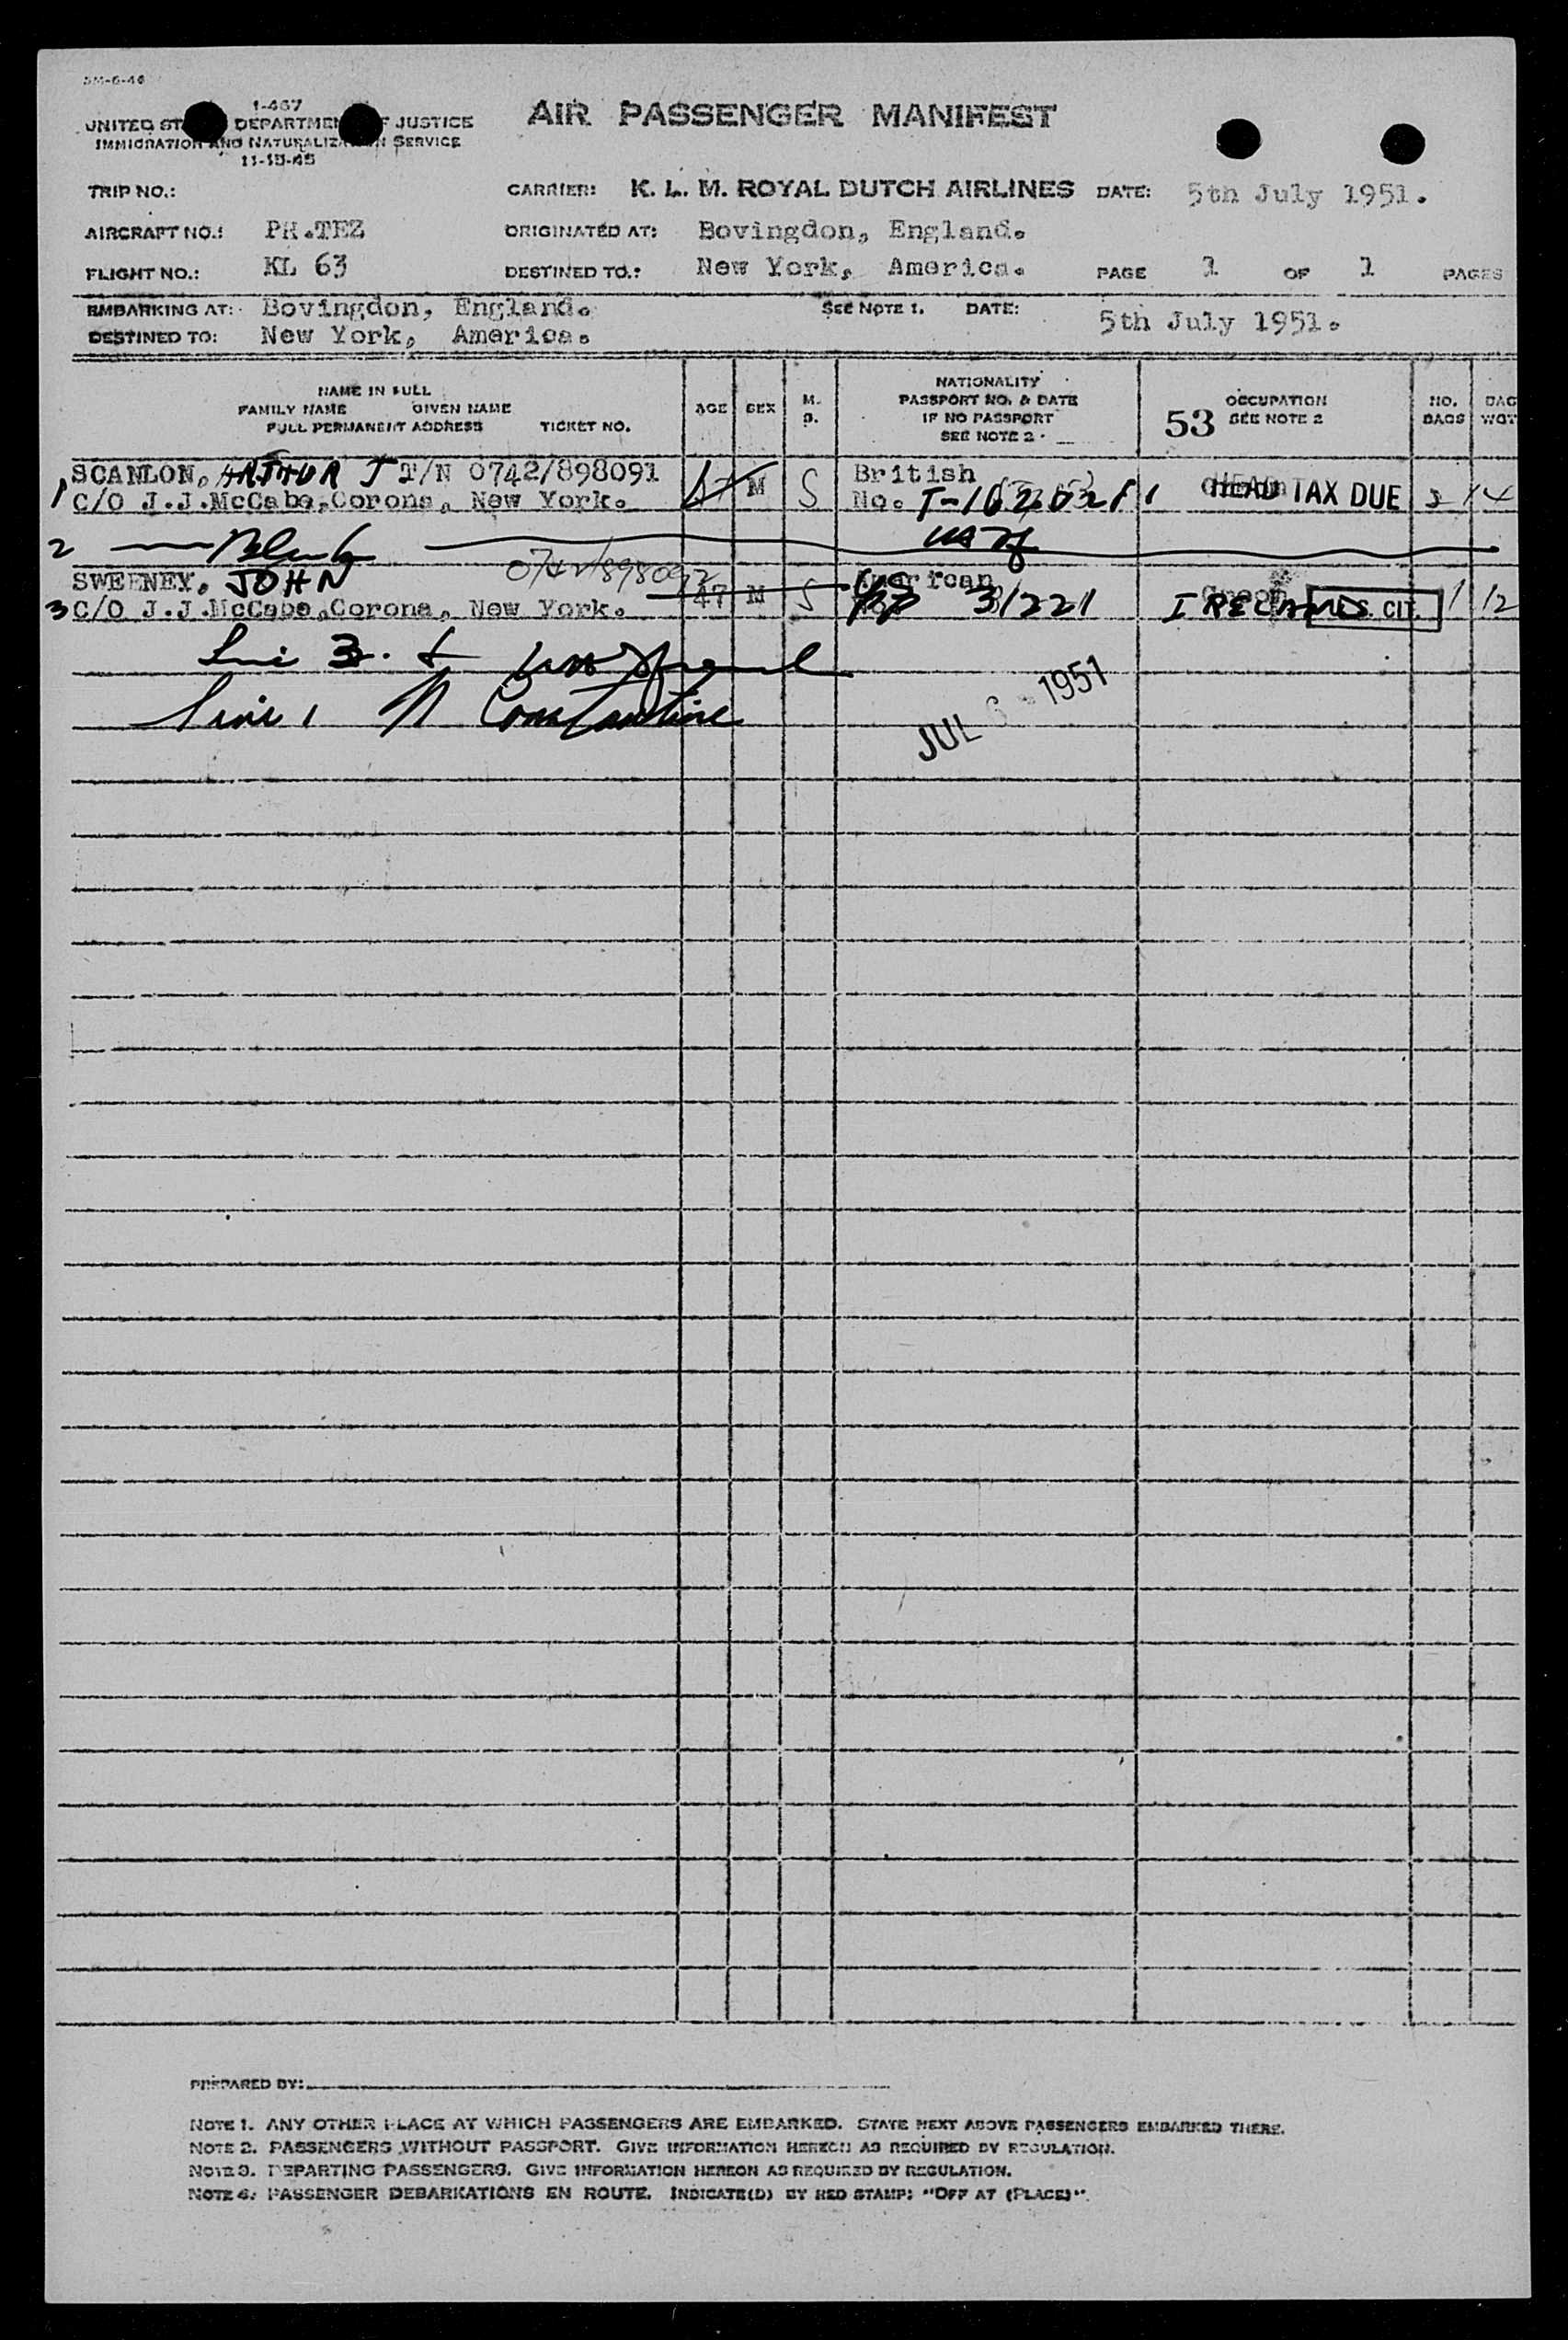 1-467
UNITED ST DEPARTMEN F JUSTICE
IMMIGRATION AND NATURALIZA N SERVICE
11-15-45
AIR PASSENGER MANIFEST
TRIP NO.: CARRIER: K. L. M. ROYAL DUTCH AIRLINES DATE: 5th July 1951.
AIRCRAFT NO.: PH.TEZ ORIGINATED AT: Bovingdon, England.
FLIGHT NO.: KL 63 DESTINED TO.: New York, America. PAGE 1 OF 1 PAGES
EMBARKING AT: Bovingdon, England. SEE NOTE 1. DATE: 5th July 1951.
DESTINED TO: New York, America.
NAME IN FULL
FAMILY NAME GIVEN NAME
FULL PERMANENT ADDRESS TICKET NO.
AGE SEX M. S.
NATIONALITY
PASSPORT NO. & DATE
IF NO PASSPORT
SEE NOTE 2
53 OCCUPATION
SEE NOTE 2
NO. BAGS BAG WGT
SCANLON, J T/N 0742/898091 M S British HEAD TAX DUE 14
1 C/O J.J.McCabe, Corona, New York. No.
2 Blank
SWEENEY, JOHN 0742/898092 47 M S US
3 C/O J.J.McCabe, Corona, New York. PP 31221 U.S. CIT. 1 12
Line 3
Line 1 Constantine
JUL 6 1951
PREPARED BY:
NOTE 1. ANY OTHER PLACE AT WHICH PASSENGERS ARE EMBARKED. STATE NEXT ABOVE PASSENGERS EMBARKED THERE.
NOTE 2. PASSENGERS WITHOUT PASSPORT. GIVE INFORMATION HEREON AS REQUIRED BY REGULATION.
NOTE 3. DEPARTING PASSENGERS. GIVE INFORMATION HEREON AS REQUIRED BY REGULATION.
NOTE 4. PASSENGER DEBARKATIONS EN ROUTE. INDICATE(D) BY RED STAMP: "OFF AT (PLACE)".